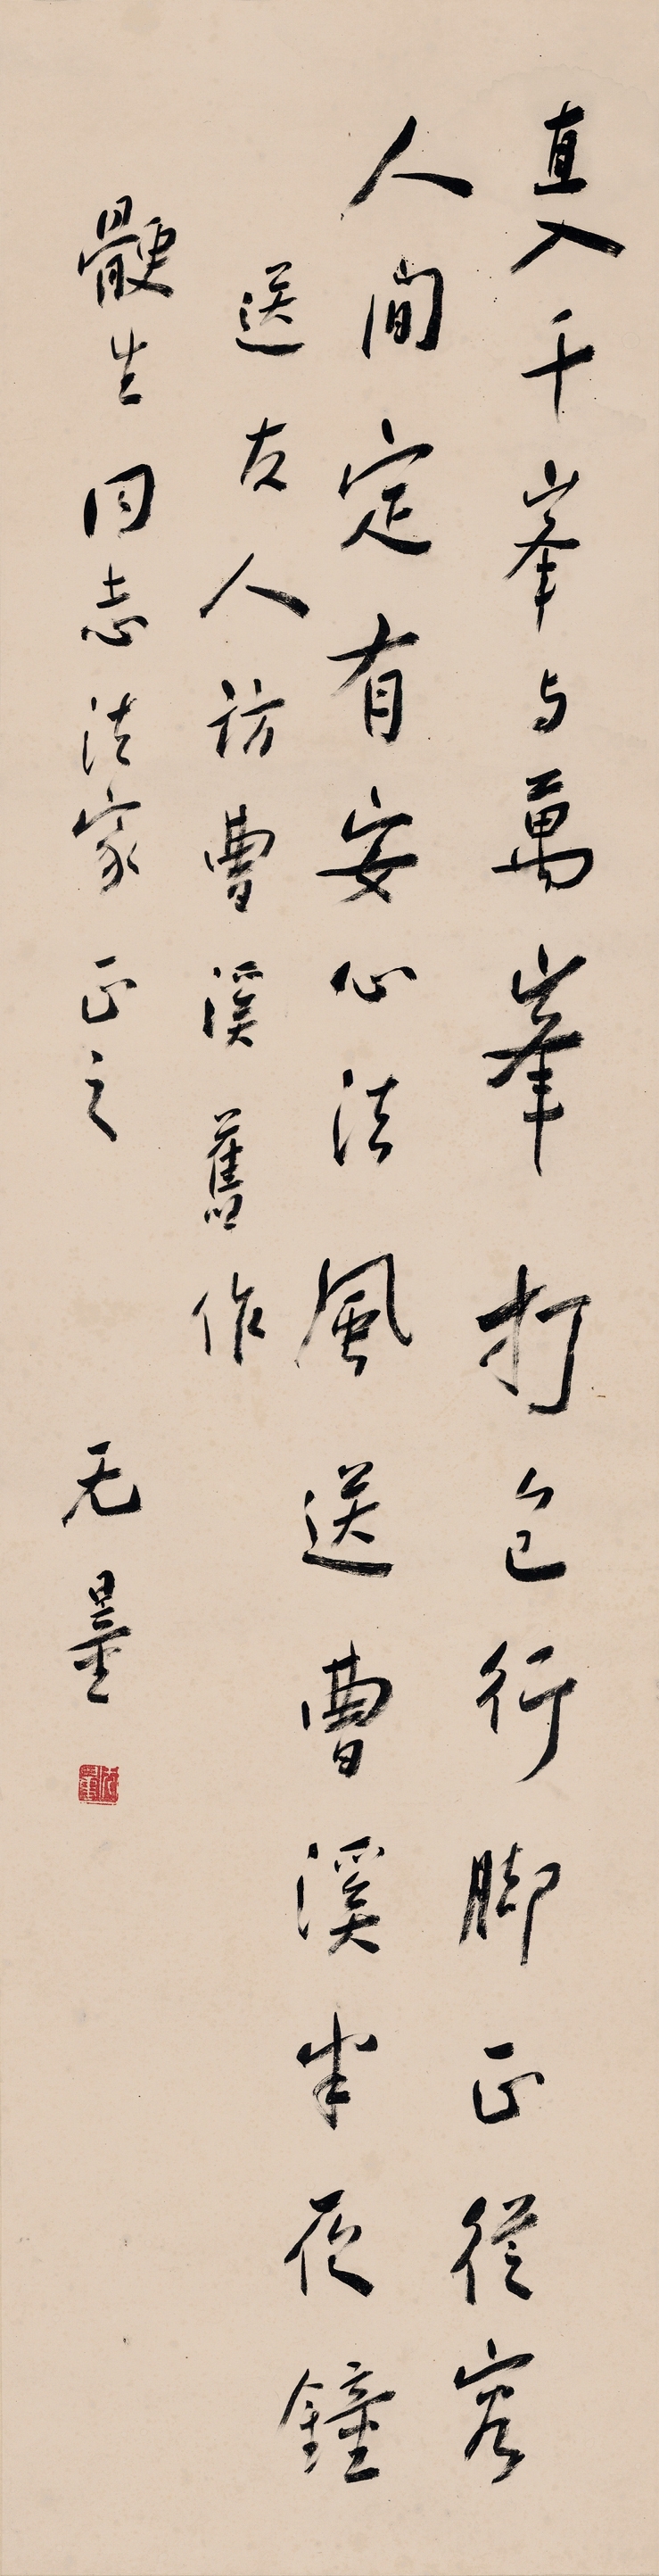 直入千峯与萬峯打包行脚正從容
人间定有安心法風送曹溪半夜鐘
送友人访曹溪舊作
骾生同志法家正之
无量